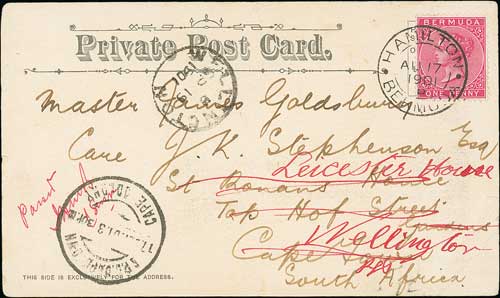 Private Post Card.
BERMUDA
ONE PENNY
HAMILTON
AU 17
1901
BERMUDA
WELLINGTON
Master James Goldsbury
Care J. K. Stephenson Esq
Leicester House
St Ronans House
Top Hof Street
Wellington
Cape
South Africa
CAPE TOWN
THIS SIDE IS EXCLUSIVELY FOR THE ADDRESS.